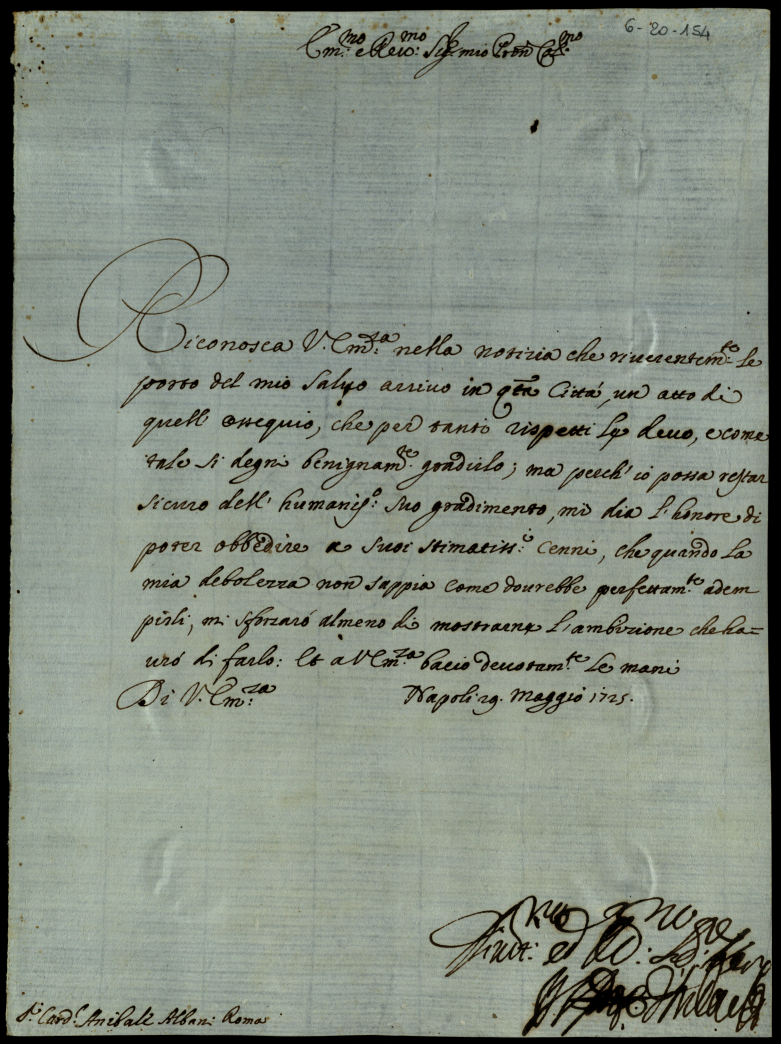 6-20-154
Em.mo e Rev.mo Sig.r mio Pron Col.mo
Riconosca V. Em.za nella notizia che riverentem.te Le
porto del mio salvo arrivo in q.ta Città, un atto di
quell' ossequio, che per tanti rispetti Le devo, e come
tale si degni benignam.te gradirlo; ma perch' io possa restar
sicuro dell' humaniss.o suo gradimento, mi dia l'honore di
poter obbedire a suoi stimatiss.i cenni, che quando la
mia debolezza non sappia come dovrebbe perfettam.te adem
pirli, mi sforzaró almeno di mostrarne l'ambizione che ha=
uró di farlo: Et a V. Em.za bacio devotam.te le mani
Di V. Em.za Napoli 29. Maggio 1725.
S.r Card.l Anibale Albani Roma